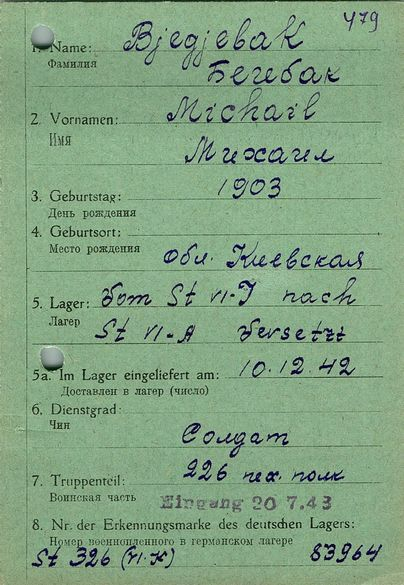 479
1. Name: Bjedjevak
Фамилия
Бегебак
2. Vornamen: Michail
Имя
Михаил
1903
3. Geburtstag:
День рождения
4. Geburtsort:
Место рождения
Обл. Киевская
5. Lager: Vom St VI-J nach
Лагер
St VI-A Versetzt
5a. Im Lager eingeliefert am: 10.12.42
Доставлен в лагер (число)
6. Dienstgrad:
Чин
Солдат
226 пех. полк
7. Truppenteil:
Воинская часть
Eingang 20 7.43
8. Nr. der Erkennungsmarke des deutschen Lagers:
Номер военнопленного в германском лагере
St 326 (VI-K) 83964